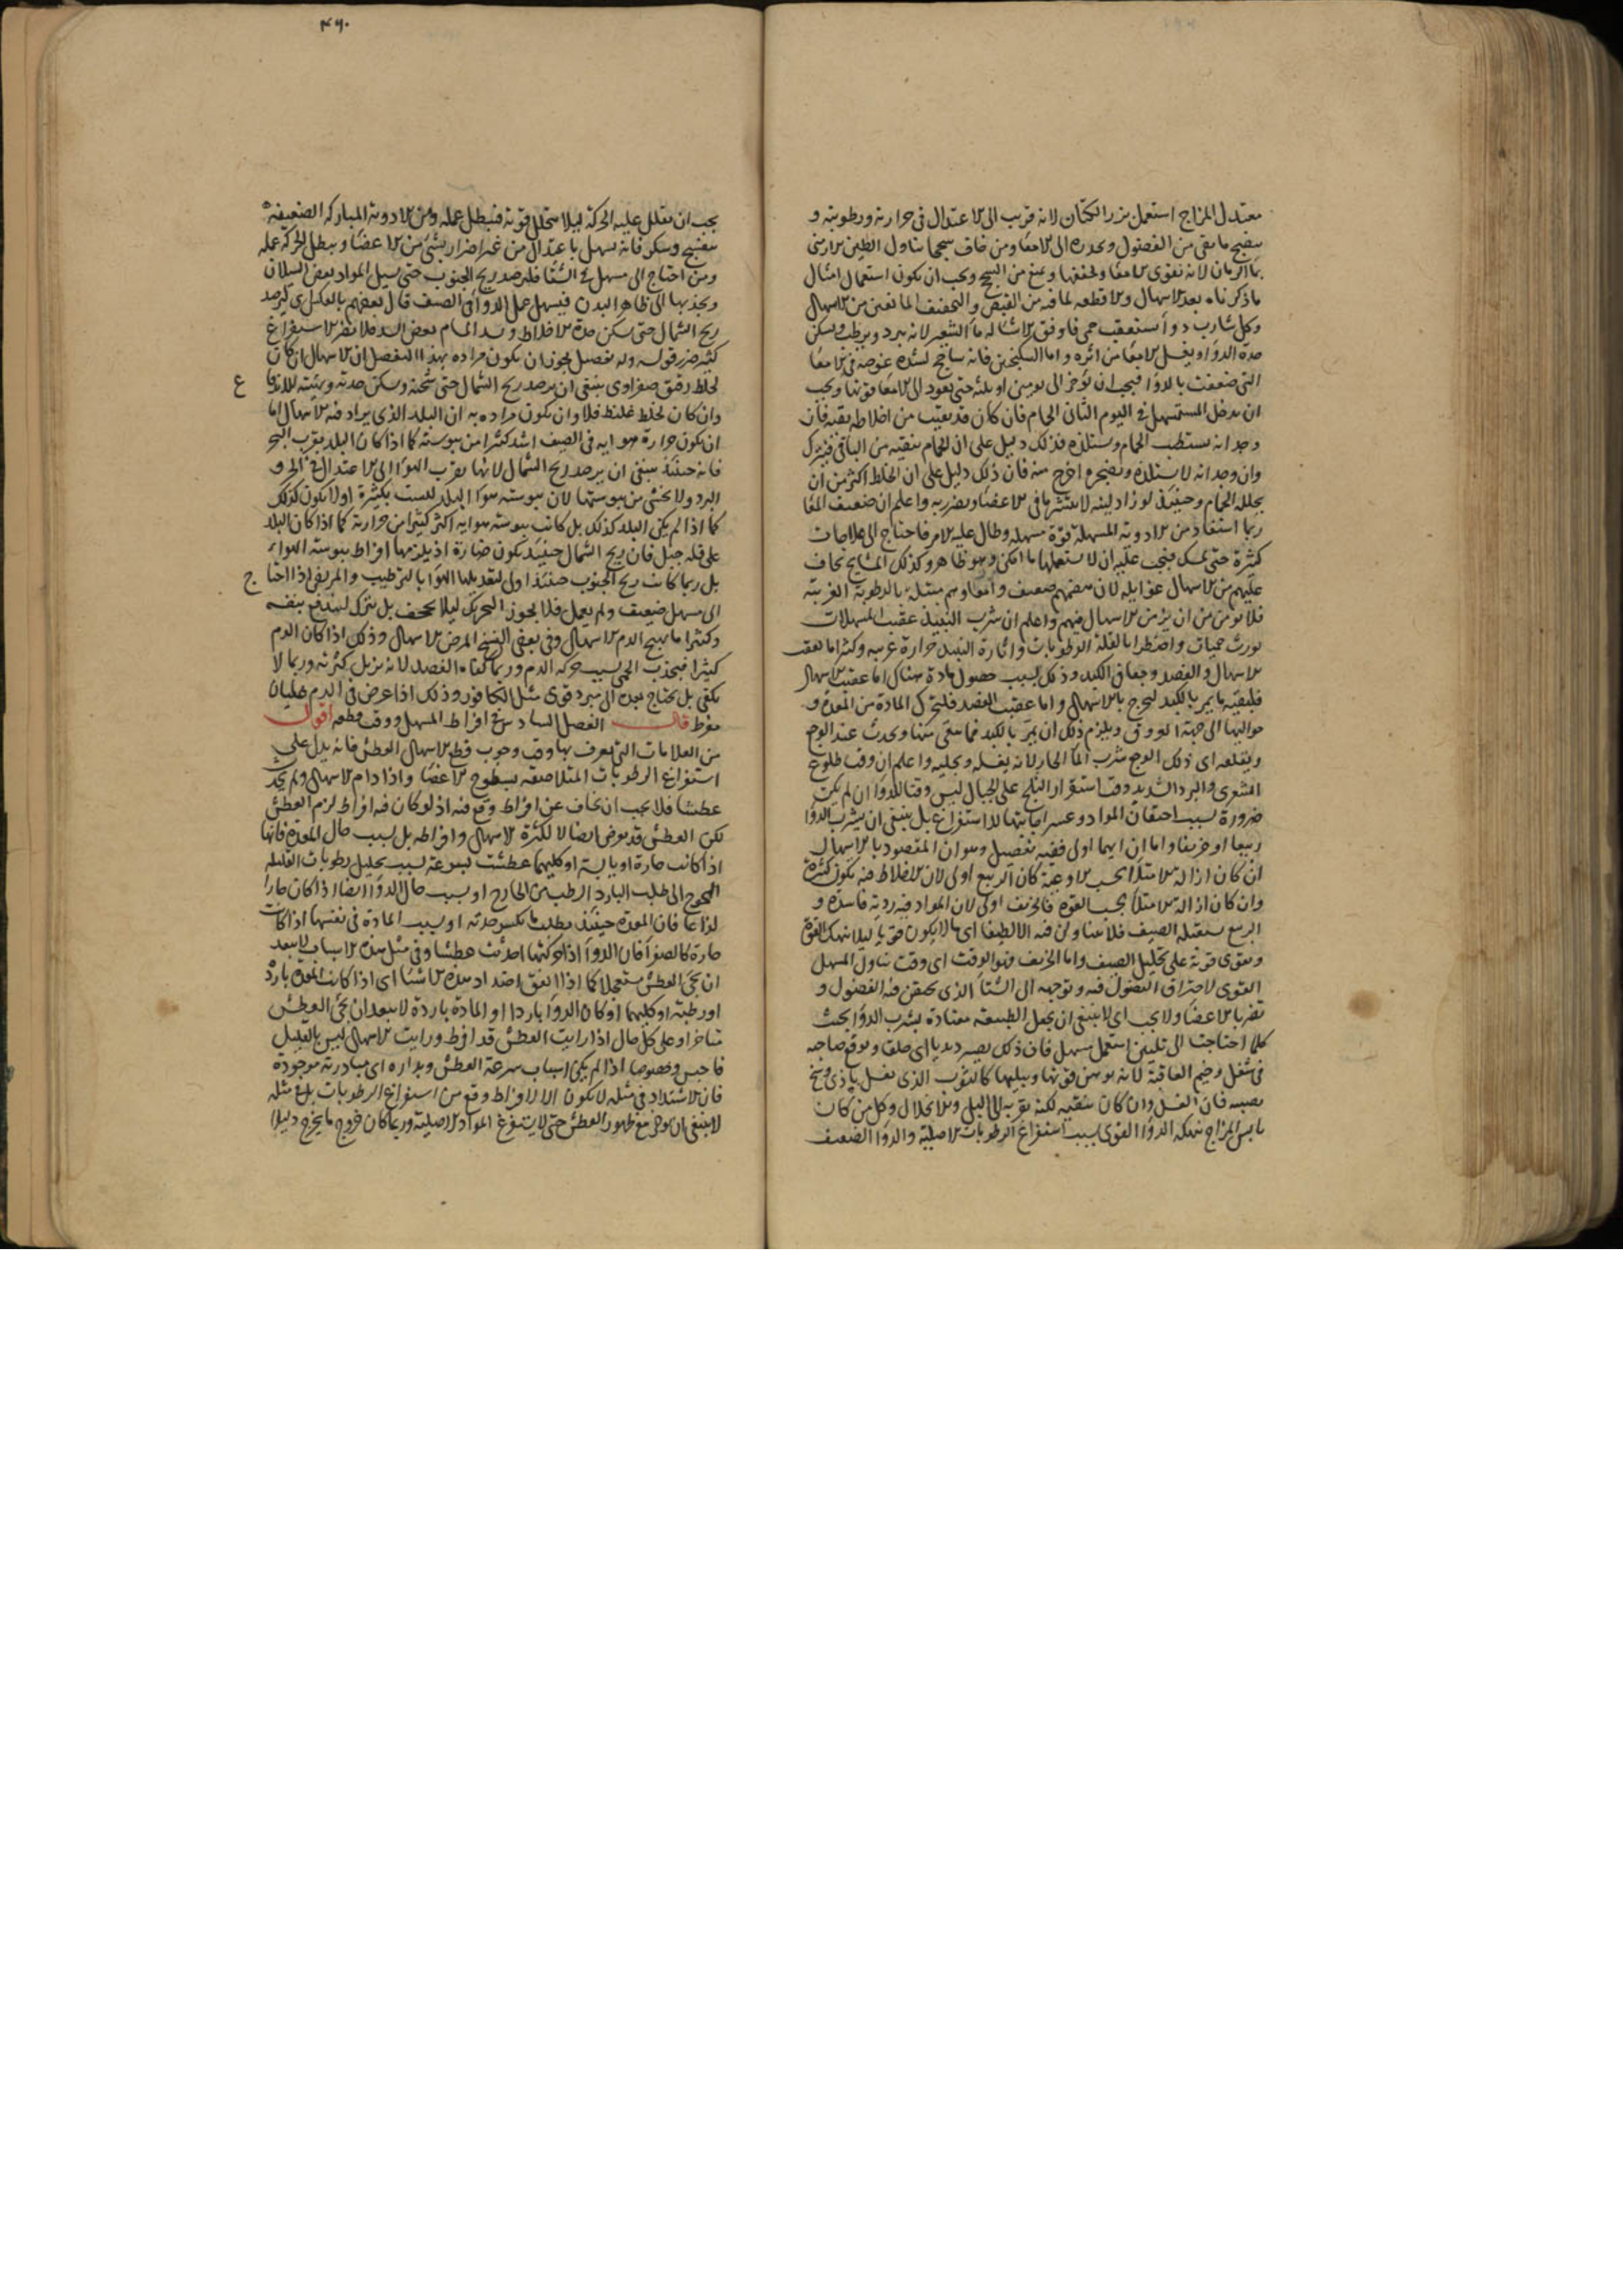 معتدل المزاج استعمل بزر الكتان لانه قريب الى الاعتدال فى حرارته ورطوبته و
ينضج ما بقى من الفضول ويحدره الى الامعا ومن خاف سحجا تناول الطين الارمنى
بماء الرمان لانه يقوى الامعا ويمنع من السحج ويجب ان يكون استعمال امثال
ما ذكرناه بعد الاسهال ولا قطعه لما فيه من القبض والتجفيف المانعين من الاسهال
وكل شارب دواء استعقب حمى فاوفق الاشيا له ماء الشعير لانه يبرد ويرطب ويسكن
حدة الدواء ويغسل الامعا من اثره واما السكنجبين فانه ساحج لشدة غوصه فى الامعا
التى ضعفت بالدواء فيجب ان يؤخر الى يومين او ثلثة حتى تعود الى الامعا قوتها ويجب
ان يدخل المستسهل فى اليوم الثانى الحمام فان كان قد بقيت من اخلاطه بقية فان
وجد انه يستطيب الحمام ويستلذه فذلك دليل على ان الحمام ينقيه من الباقى فيترك
وان وجد انه لا يستلذه ويضجره اخرج منه فان ذلك دليل على ان الخلط اكثر من ان
يحلله الحمام وحينئذ لو زاد لبثه لانتشر ما فى الاعضا ويضر به واعلم ان ضعيف المعا
ربما استفاد من الادوية المسهلة قوة مسهلة وطال عليه الامر فاحتاج الى علاجات
كثيرة حتى يمسك فيجب عليه ان لا يستعملها ما امكن وهو ظاهر وكذلك المشايخ يخاف
عليهم من الاسهال غوائله لان هضمهم ضعيف وامعاوهم ممتلئة بالرطوبة الغريبة
فلا يؤمن من ان يزمن الاسهال فيهم واعلم ان شرب النبيذ عقيب المسهلات
يورث حميات واضطرابا لقلة الرطوبات واثارة النبيذ حرارة غريبة وكثيرا ما يعقب
الاسهال والفصد وجعا فى الكبد وذلك بسبب حصول مادة هناك اما عقيب الاسهال
فلبقية ما يمر بالكبد ليخرج بالاسهال واما عقيب الفصد فلتحرك المادة من المعدة و
حواليها الى جهة العروق ويلزم ذلك ان يمر بالكبد فما بقى منها ويحدث عنه الوجع
ويقلعه اى ذلك الوجع شرب الماء الحار لانه يغسله ويحلله واعلم ان وقت طلوع
الشعرى والبرد الشديد وقت استقرار الثلج على الجبال ليس وقتا للدواء ان لم يكن
ضرورة بسبب احتقان المواد وعسر اجابتها للاستفراغ بل ينبغى ان يشرب الدواء
ربيعا او خريفا واما ان ايهما اولى ففيه تفصيل وهو ان المقصود بالاسهال
ان كان ازالة الامتلاء بحسب الاوعية كان الربيع اولى لان الاخلاط فيه يكون كثيرة
وان كان ازالة الامتلاء بحسب القوة فالخريف اولى لان المواد فيه ردية فاسدة و
الربيع يستقبله الصيف فلا يتناولن فيه الا لطيفا اى ما لا يكون قويا ليلا ينهك القوة
ويقوى قوته على تحليل الصيف واما الخريف فهو الوقت اى وقت تناول المسهل
القوى لاحتراق الفضول فيه وتوجهه الى الشتاء الذى يحتقن فيه الفضول و
تضر بالاعضا ولا يجب اى لا ينبغى ان يجعل الطبيعة معتادة بشرب الدواء بحيث
كلما احتاجت الى تليين استعمل مسهل فان ذلك يصير ديدنا اى خلقا ويوقع صاحبه
فى شغل وخيم العاقبة لانه يوهن قوتها ويبليها كالثوب الذى يغسل باذى وسخ
يصيبه فان الغسل وان كان ينقيه لكنه يقربه الى البلى والانحلال وكل من كان
يابس المزاج ينهكه الدواء القوى بسبب استفراغ الرطوبات الاصلية والدواء الضعيف
٤٦٠
يجب ان يقلل عليه الحركة ليلا يتحلل قوته فيبطل عمله ومن الادوية المباركة الضعيفة
بنفسج وسكر فانه يسهل باعتدال من غير اضرار بشئ من الاعضا ويبطل الحركة عمله
ومن احتاج الى مسهل فى الشتا فليرصد ريح الجنوب حتى تسيل المواد بعض السيلان
ويجذبها الى ظاهر البدن فيسهل عمل الدواء وفى الصيف قال بعضهم بالعكس اى ليرصد
ريح الشمال حتى يسكن حدة الاخلاط ويسد المسام بعض السد فلا يضر الاستفراغ
كثير ضرر قوله وله تفصيل يجوز ان يكون مراده بهذا التفصيل ان الاسهال ان كان
لخلط رقيق صفراوى ينبغى ان يرصد ريح الشمال حتى تثخنه وتسكن حدته وتهيئه للاندفا
ع
وان كان لخلط غليظ فلا وان يكون مراده به ان البلد الذى يراد فيه الاسهال اما
ان يكون حرارة هوائه فى الصيف اشد كثيرا من يبوسته كما اذا كان البلد بقرب البحر
فانه حينئذ ينبغى ان يرصد ريح الشمال لانها يقرب الهواء الى الاعتدال فى الحر و
البرد ولا يخشى من يبوستها لان يبوسته هواء البلد ليست بكثيرة او لا يكون كذلك
كما اذا لم يكن البلد كذلك بل كانت يبوسة هوائه اكثر كثيرا من حرارته كما اذا كان البلد
على قلة جبل فان ريح الشمال حينئذ يكون ضارة اذ يلزمها افراط يبوسة الهواء
بل ربما كانت ريح الجنوب حينئذ اولى لتعديلها الهواء بالترطيب والمريض اذا احتا
ج
الى مسهل ضعيف ولم يعمل فلا يجوز التحريك ليلا يجحف بل يترك ليندفع بنفسه
وكثيرا ما يهيج الدم الاسهال وفى بعض النسخ المرض الاسهال وذلك اذا كان الدم
كثيرا فيحدث الحمى بسبب حركة الدم وربما كفاه الفصد لانه يزيل كثرته وربما لا
يكفى بل يحتاج بعده الى مبرد قوى مثل الكافور وذلك اذا عرض فى الدم غليان
مفرط قال الفصل السادس فى افراط المسهل ووقت قطعه اقول
من العلامات التى يعرف بها وقت وجوب قطع الاسهال العطش فانه يدل على
استفراغ الرطوبات المتلاصقة بسطوح الاعضا واذا دام الاسهال ولم يحدث
عطشا فلا يجب ان يخاف عن افراط وقع فيه اذ لو كان فيه افراط لزم العطش
لكن العطش قد يعرض ايضا لا لكثرة الاسهال وافراطه بل بسبب حال المعدة فانها
اذا كانت حارة او يابسة او كليهما عطشت بسرعة بسبب تحليل رطوبات القليلة
المحوج الى طلب البارد الرطب من الخارج او بسبب حال الدواء ايضا اذا كان حارا
لذاعا فان المعدة حينئذ يطلب ما يكسر حدته او بسبب المادة فى نفسها اذا كانت
حارة كالصفراء فان الدواء اذا حركتها احدثت عطشا وفى مثل هذه الاسباب لا يبعد
ان يجئ العطش مستعجلا كما اذا اتفق اضداد هذه الاشيا اى اذا كانت المعدة باردة
او رطبة او كليهما او كان الدواء باردا او المادة باردة لا يبعد ان يجئ العطش
متاخرا وعلى كل حال اذا رايت العطش قد افرط ورايت الاسهال ليس بالقليل
فاحبس وخصوصا اذا لم يكن اسباب سرعة العطش وبداره اى مبادرته موجودة
فان الاشتداد فى مثله لا يكون الا لافراط وقع من استفراغ الرطوبات بل فى مثله
لا ينبغى ان يؤخر مع ظهور العطش حتى لا يستفرغ المواد الاصلية وربما كان خروج ما يخرج دليلا